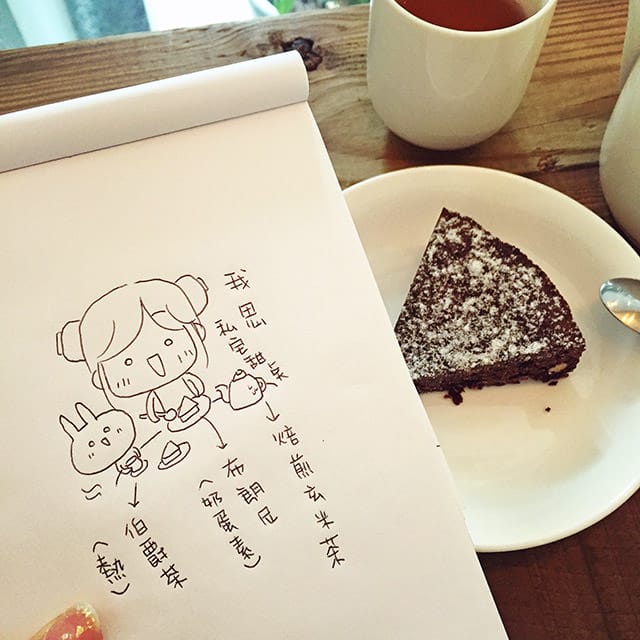 我思
私宅甜点
焙煎玄米茶
布朗尼
(奶蛋素)
伯爵茶
(熱)